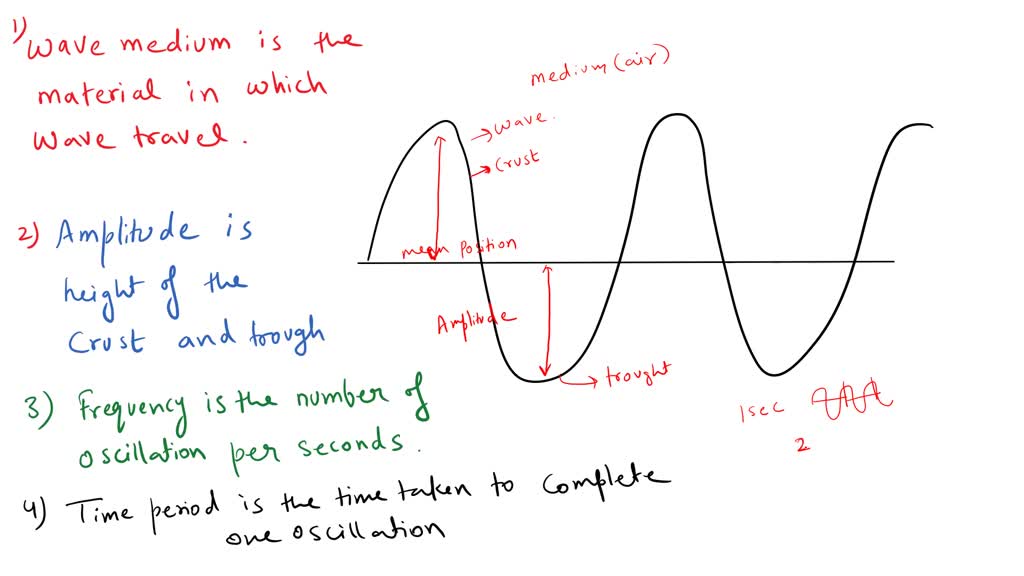 1) Wave medium is the
material in which
Wave travel.
medium (air)
→ Wave.
→ Crust
2) Amplitude is
height of the
Crust and trough
mean Position
Amplitude
→ trought
3) Frequency is the number of
oscillation per seconds.
1 sec
2
4) Time period is the time taken to complete
one oscillation